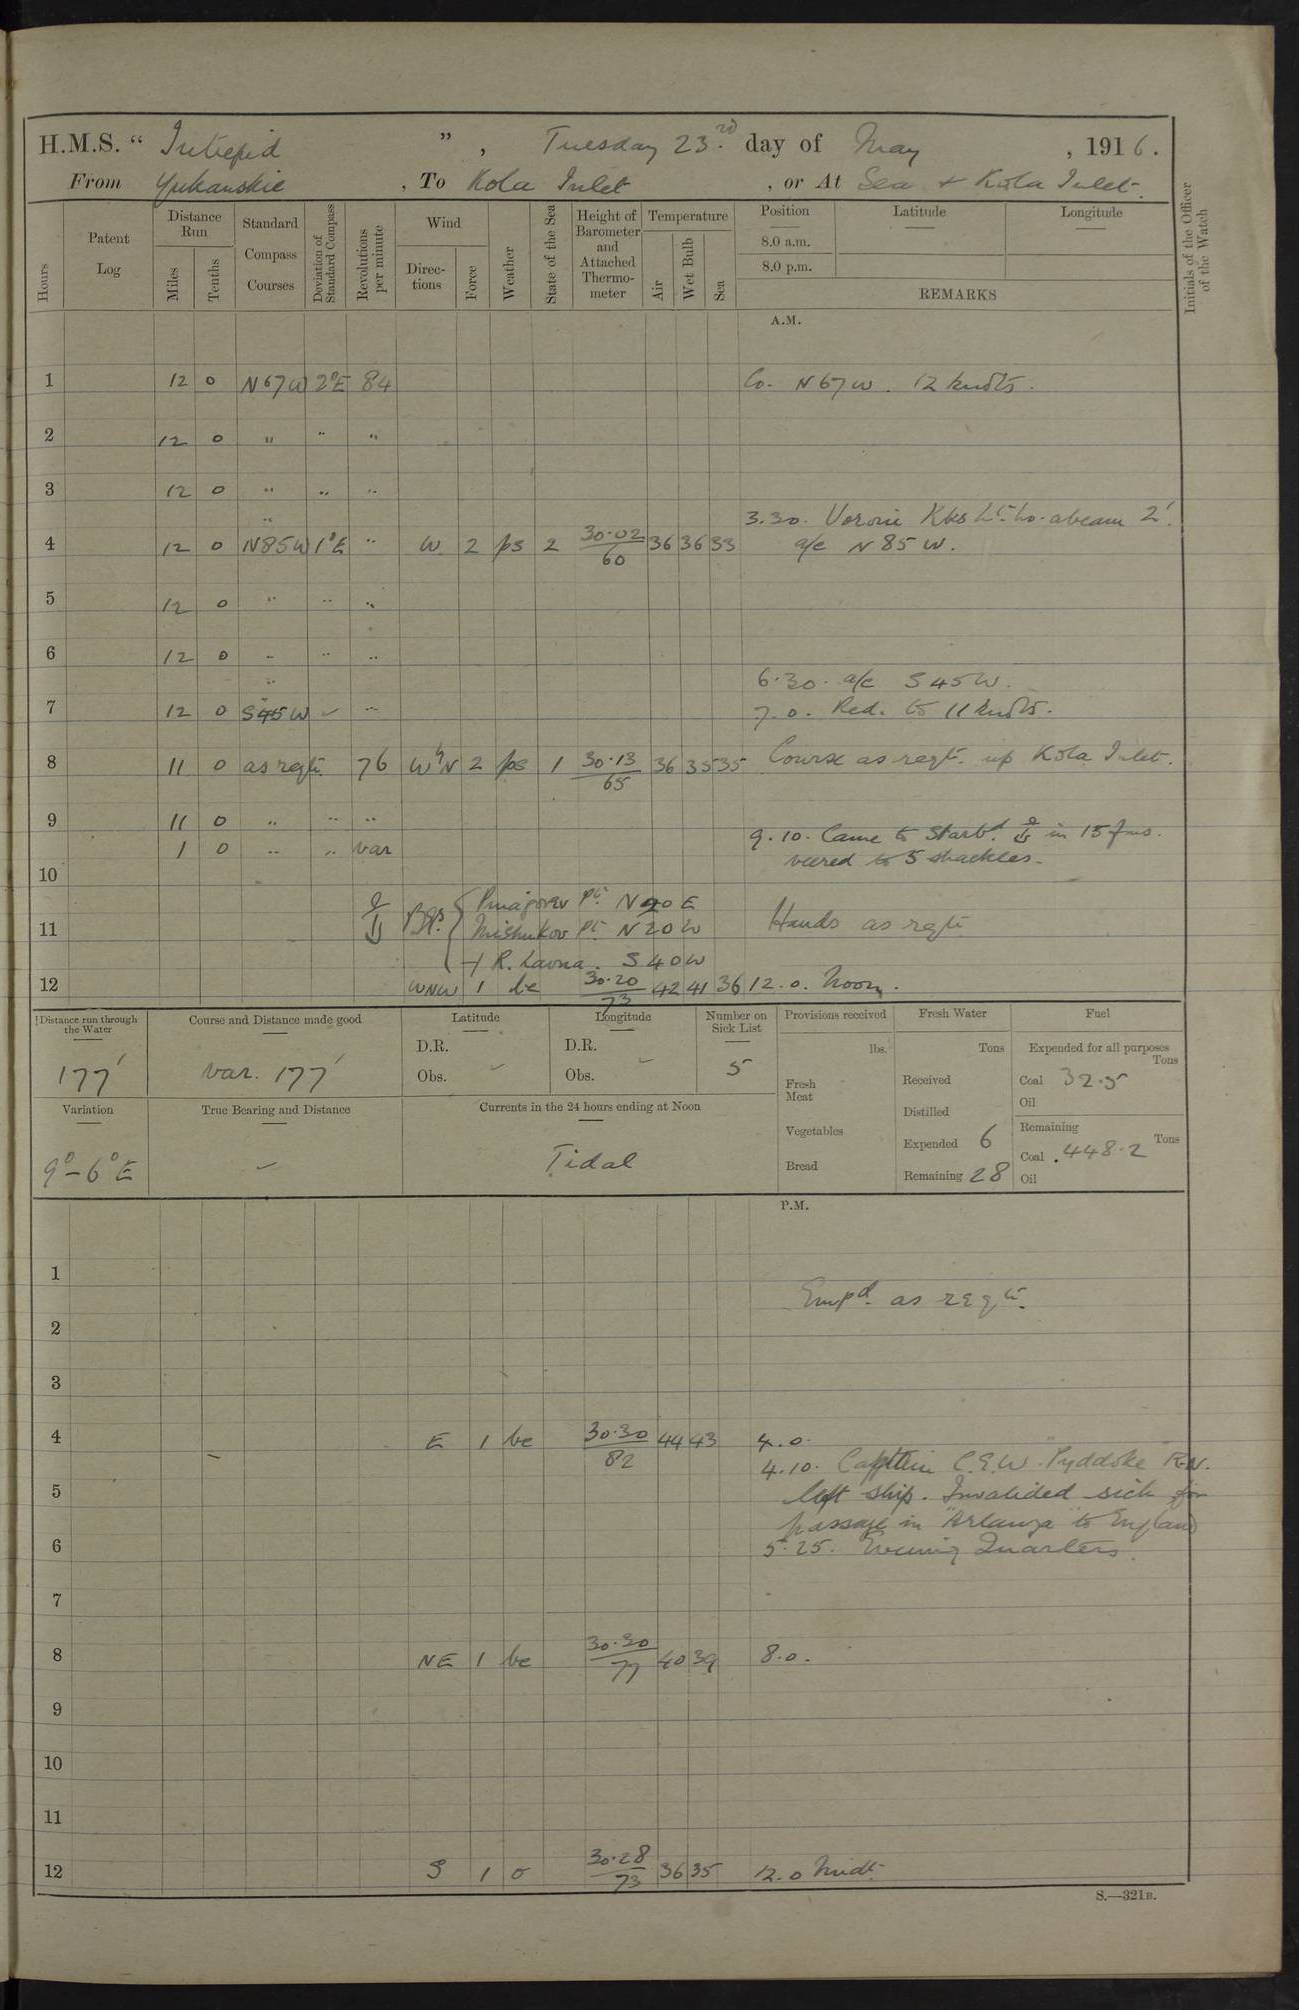 H.M.S. “ Intrepid ” , Tuesday 23.rd day of May , 1916.
From Yukanskie , To Kola Inlet , or At Sea + Kola Inlet.
Hours Patent Log Distance Run Miles Tenths Standard Compass Courses Deviation of Standard Compass Revolutions per minute Wind Direc-tions Force Weather State of the Sea Height of Barometer and Attached Thermo-meter Temperature Air Wet Bulb Sea Position 8.0 a.m. 8.0 p.m. Latitude Longitude REMARKS Initials of the Officer of the Watch
A.M.
1 12 0 N67W 2°E 84 Co. N 67 W. 12 knots.
2 12 0 " " "
3 12 0 " " "
" 3.30. Voronie Kks Lt. Ho. abeam 2'.
4 12 0 N85W 1°E " W 2 ps 2 30.02/60 36 36 33 a/c N 85 W.
5 12 0 " " "
6 12 0 " " "
" 6.30. a/c S 45 W.
7 12 0 S45W " 7.0. Red. to 11 knots.
8 11 0 as reqt. 76 WbyN 2 ps 1 30.13/65 36 35 35 Course as reqt. up Kola Inlet.
9 11 0 " " "
1 0 " " var 9.10. Came to Starbd. ⚓ in 15 fms.
10 veered to 5 shackles.
⚓ Bgs. { Pt. N40E
11 Mishukov Pt. N20W Hands as reqt.
+ R. Lavna. S40W
12 WNW 1 bc 30.20/73 42 41 36 12.0. Noon.
Distance run through the Water Course and Distance made good Latitude Longitude Number on Sick List Provisions received Fresh Water Fuel
177' var. 177' D.R. Obs. - D.R. Obs. - 5 lbs. Tons Expended for all purposes Tons
Fresh Meat Received Coal 32.5
Oil
Variation True Bearing and Distance Currents in the 24 hours ending at Noon Distilled
Vegetables Expended 6 Remaining Tons
9°-6°E - Tidal Coal 448.2
Bread Remaining 28 Oil
P.M.
1
Empd. as reqt.
2
3
4 E 1 bc 30.30/82 44 43 4.0.
4.10. Captain C.E.W. Pyddoke R.N.
5 left ship. Invalided sick for
passage in "Arlanza" to England
6 5.25. Evening Quarters.
7
8 NE 1 bc 30.30/77 40 39 8.0.
9
10
11
12 S 1 o 30.28/73 36 35 12.0 Midt.
S.—321B.